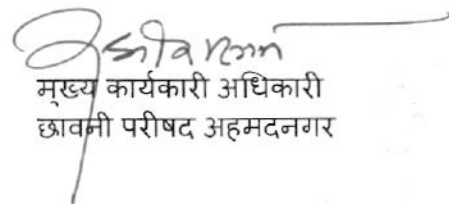 मुख्य कार्यकारी अधिकारी
छावनी परीषद अहमदनगर